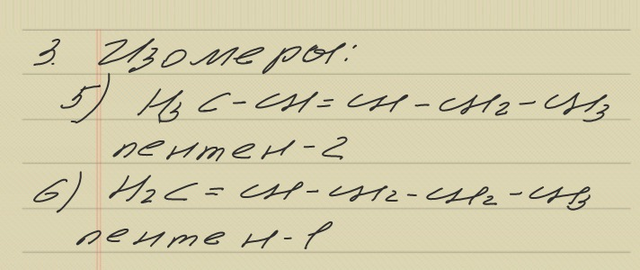 3. Изомеры:
5) H₃C-CH=CH-CH₂-CH₃
пентен-2
6) H₂C=CH-CH₂-CH₂-CH₃
пентен-1